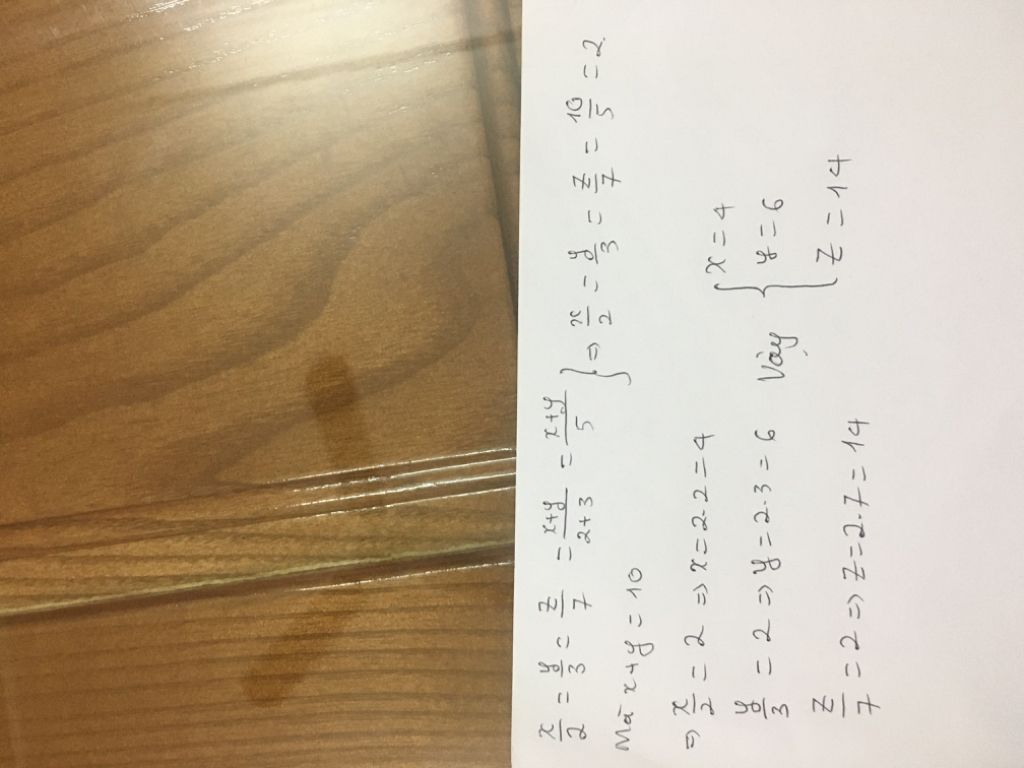 x/2 = y/3 = z/7 = x+y/2+3 = x+y/5
Mà x+y = 10
} ⇒ x/2 = y/3 = z/7 = 10/5 = 2
⇒ x/2 = 2 ⇒ x = 2.2 = 4
y/3 = 2 ⇒ y = 2.3 = 6
z/7 = 2 ⇒ z = 2.7 = 14
Vậy { x = 4
y = 6
z = 14